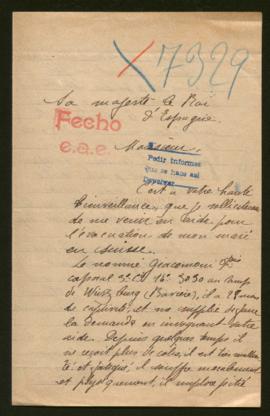 X7329
Sa majesté le Roi
d'Espagne.
Fecho
e.a.e.
Monsieur
Pedir informes
que se haga así
Devolver
C'est à votre haute
bienveillance, que je
de me venir en aide pour
l'évacuation de mon mari
en Suisse.
Le nommé Giacomoni
caporal 3e Cie No 3030 au camp
de Wurzburg (Bavière), il a 28 mois
de captivité, et me supplie de faire
la demande en invoquant votre
aide. Depuis quelque temps il
ne reçoit plus de colis, il est
et fatigué, il souffre moralement
et physiquement, il implore pitié